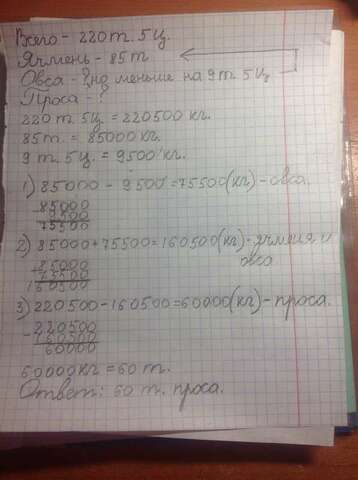 Всего - 220 т. 5 ц.
Ячмень - 85 т
Овса - ? на меньше на 9 т. 5 ц
Проса - ?
220 т. 5 ц. = 220500 кг.
85 т = 85000 кг.
9 т. 5 ц. = 9500 кг.
1) 85000 - 9500 = 75500 (кг) - овса.
- 85000
9500
75500
2) 85000 + 75500 = 160500 (кг) - ячменя и овса
85000
75500
160500
3) 220500 - 160500 = 60000 (кг) - проса.
- 220500
160500
60000
60000 кг = 60 т.
Ответ: 60 т. проса.